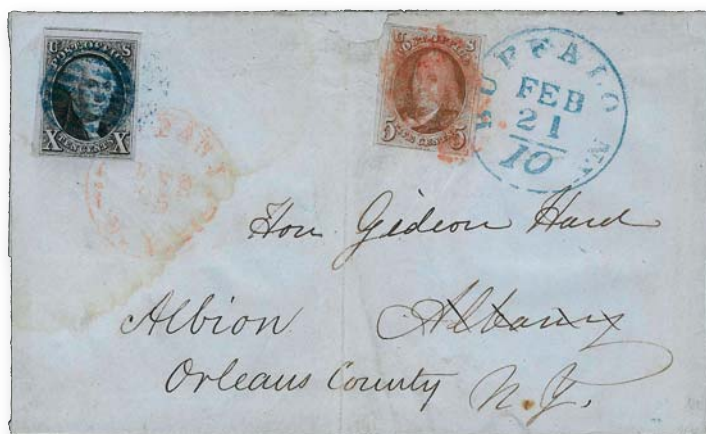 U S
POST OFFICE
X X
TEN CENTS
U S
POST OFFICE
5 5
FIVE CENTS
BUFFALO N.Y.
FEB
21
10
Hon. Gideon Hard
Albion Albany
Orleans County N.Y.